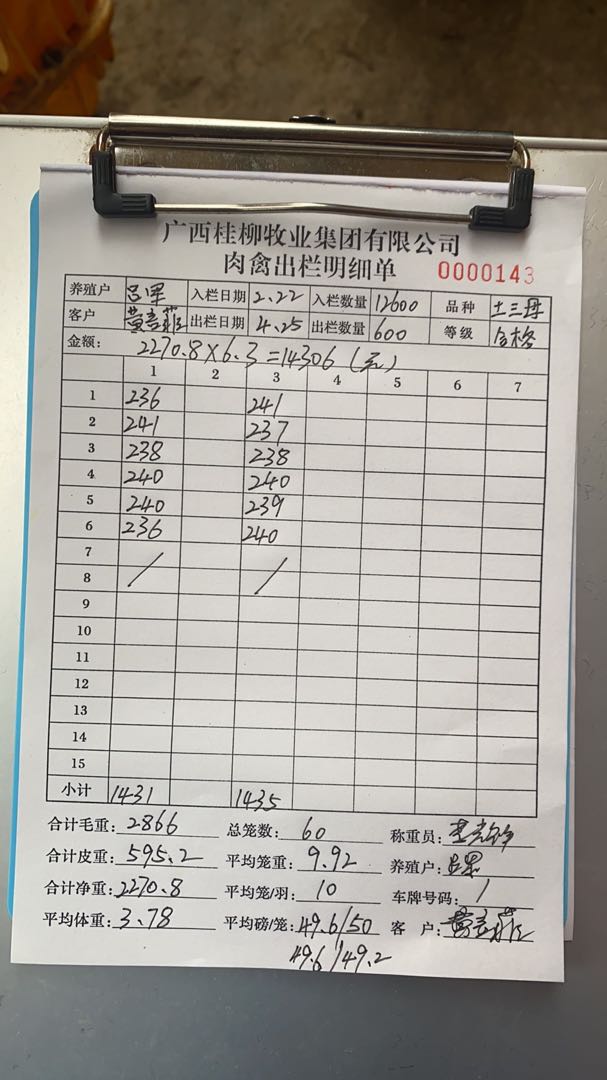 广西桂柳牧业集团有限公司
肉禽出栏明细单 0000143
养殖户 吕军 入栏日期 2.22 入栏数量 12600 品种 土三母
客户 出栏日期 4.25 出栏数量 600 等级 合格
金额: 2270.8×6.3=14306(元)
1 2 3 4 5 6 7
1 236 241
2 241 237
3 238 238
4 240 240
5 240 239
6 236 240
7
8 / /
9
10
11
12
13
14
15
小计 1431 1435
合计毛重: 2866 总笼数: 60 称重员:
合计皮重: 595.2 平均笼重: 9.92 养殖户:
合计净重: 2270.8 平均笼/羽: 10 车牌号码: /
平均体重: 3.78 平均磅/笼: 49.6/50 客 户:
49.6/49.2